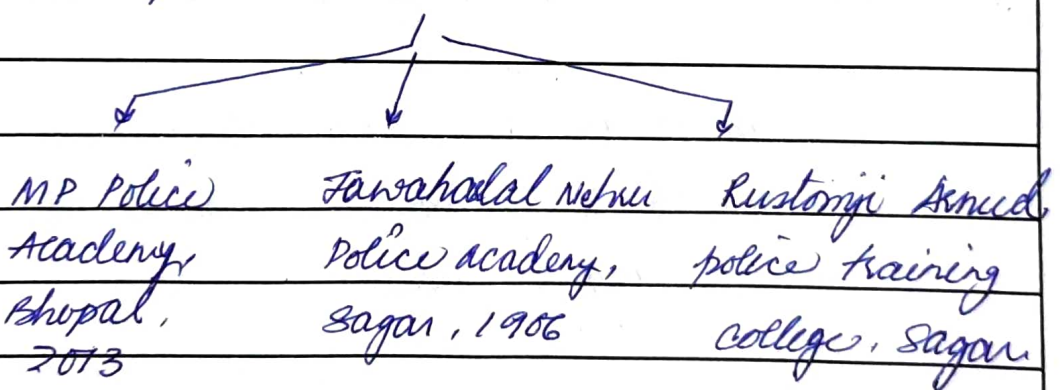 MP Police
Academy,
Bhopal,
2013
Jawahadal Nehru
Police academy,
Sagar, 1906
Rustomji Armed,
police training
college, Sagar.